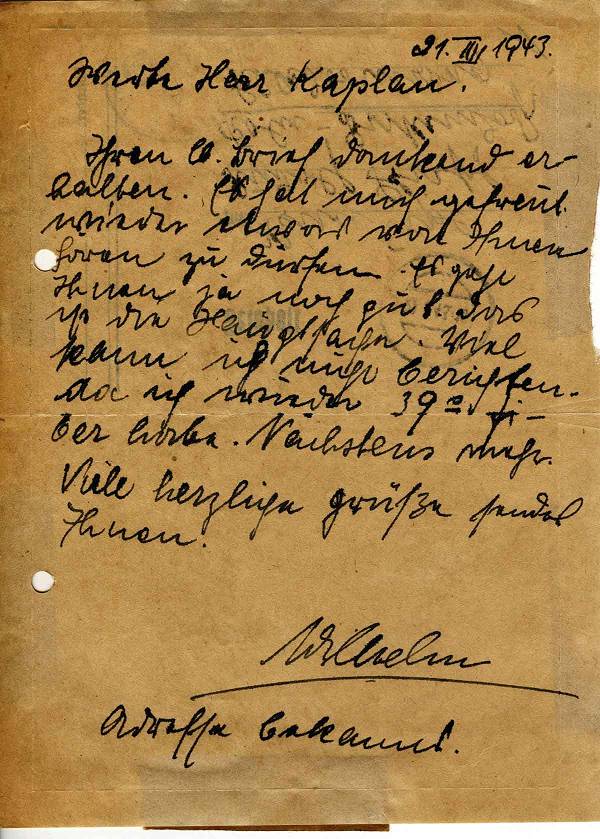 21. III 1943.
Werte Herr Kaplan.
Ihren lb. Brief dankend er-
halten. Es hat mich gefreut
wieder etwas von Ihnen
horen zu durfen. Es geht
Ihnen ja noch gut das
ist die Hauptsache Viel
kann ich nicht berichten.
da ich wieder 39° Fi-
ber habe. Nächstens mehr.
Viele herzliche grüße sendet
Ihnen.
Wilhelm
Adresse bekannt.